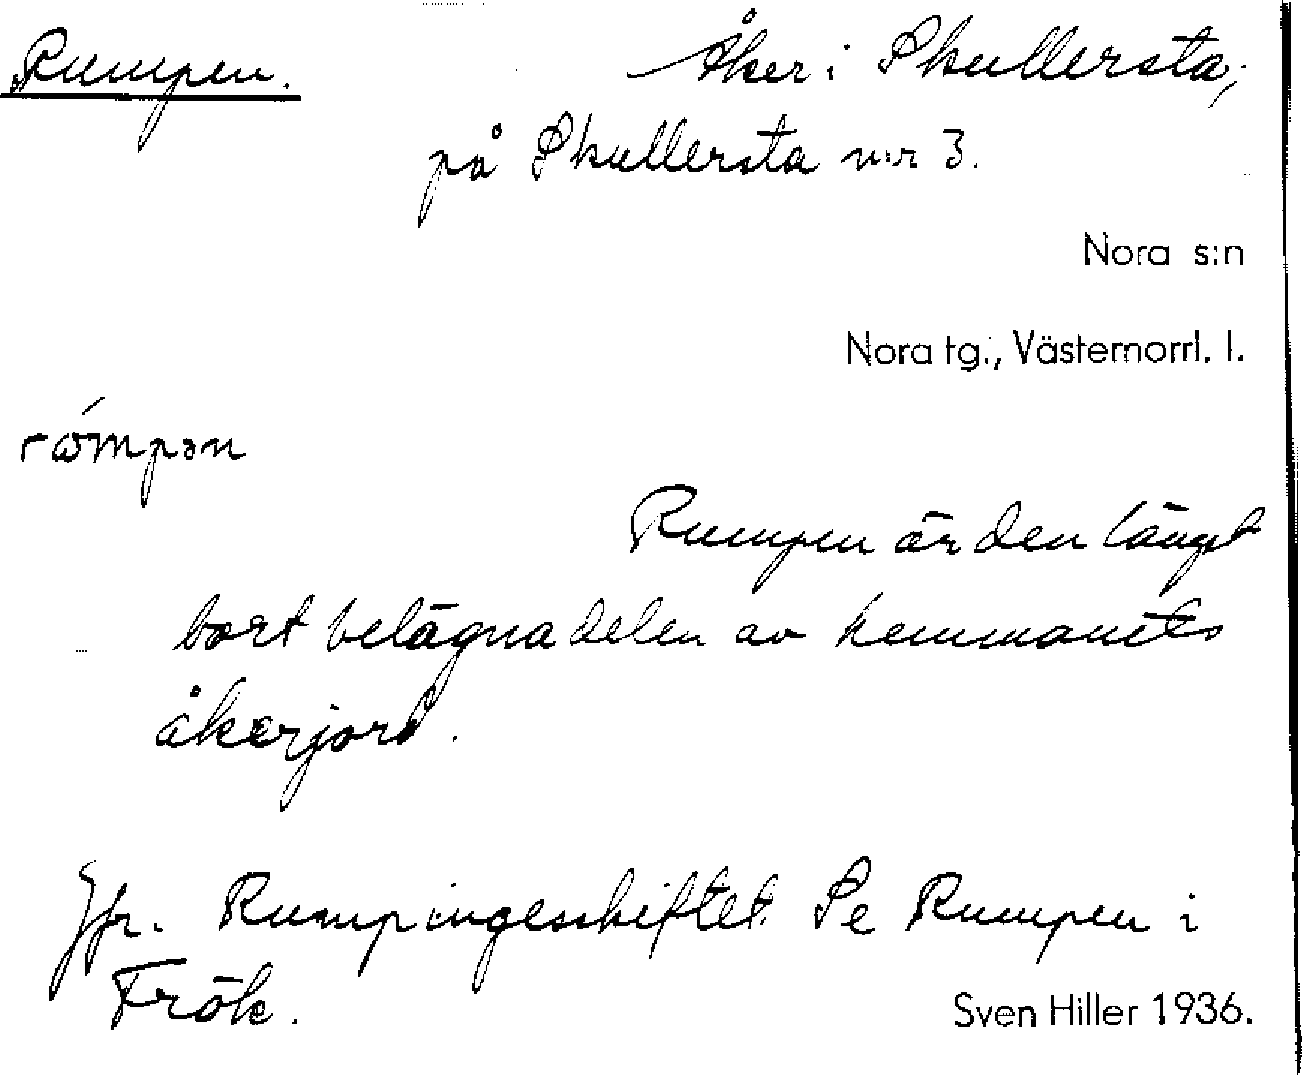 Rumpen. Åker i Skullersta,
på Skullersta nr 3.
Nora s:n
Nora tg., Västernorrl. l.
rώmpən
Rumpen är den längst
bort belägna delen av hemmanets
åkerjord.
Jfr. Rumpingesskiftet. Se Rumpen i
Frök.
Sven Hiller 1936.